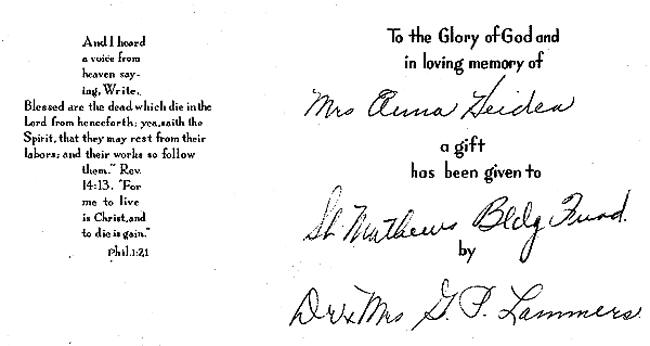 And I heard
a voice from
heaven say-
ing, Write,
Blessed are the dead which die in the
Lord from henceforth; yea, saith the
Spirit, that they may rest from their
labors; and their works so follow
them." Rev.
14:13. "For
me to live
is Christ, and
to die is gain."
Phil. 1:21
To the Glory of God and
in loving memory of
Mrs Anna Heiden
a gift
has been given to
St. Mathews Bldg Fund.
by
Dr & Mrs G. P. Lammers